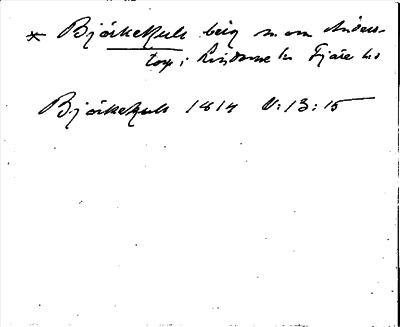 * Björkekull berg n om Anders-
torp i Lindome sn Fjäre hd
Björkekull 1814 V:13:15